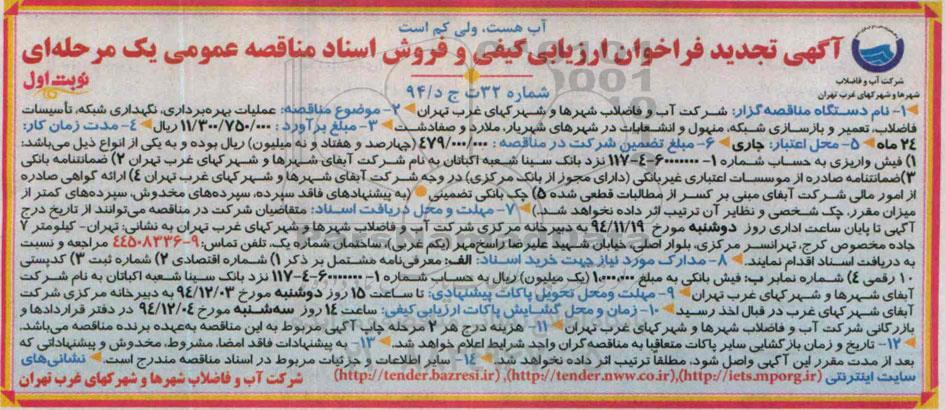 آب هست، ولی کم است
آگهی تجدید فراخوان ارزیابی کیفی و فروش اسناد مناقصه عمومی یک مرحله‌ای
نوبت اول
شرکت آب و فاضلاب
شهرها و شهرکهای غرب تهران
شماره ۳۲ت ج د/۹۴
۱- نام دستگاه مناقصه گزار: شرکت آب و فاضلاب شهرها و شهرکهای غرب تهران ۲- موضوع مناقصه: عملیات بهره‌برداری، نگهداری شبکه، تأسیسات
فاضلاب، تعمیر و بازسازی شبکه، منهول و انشعابات در شهرهای شهریار، ملارد و صفادشت ۳- مبلغ برآورد: ۱۱/۳۰۰/۷۵۰/۰۰۰ ریال ۴- مدت زمان کار:
۲۴ ماه ۵- محل اعتبار: جاری ۶- مبلغ تضمین شرکت در مناقصه: ۴۷۹/۰۰۰/۰۰۰ (چهارصد و هفتاد و نه میلیون) ریال بوده و به یکی از انواع ذیل می‌باشد:
۱) فیش واریزی به حساب شماره ۱-۶۰۰۰۰۰۰-۴-۱۱۷ نزد بانک سینا شعبه اکباتان به نام شرکت آبفای شهرها و شهرکهای غرب تهران ۲) ضمانتنامه بانکی
۳) ضمانتنامه صادره از موسسات اعتباری غیربانکی (دارای مجوز از بانک مرکزی) در وجه شرکت آبفای شهرها و شهرکهای غرب تهران ۴) ارائه گواهی صادره
از امور مالی شرکت آبفای مبنی بر کسر از مطالبات قطعی شده ۵) چک بانکی تضمینی (به پیشنهادهای فاقد سپرده، سپرده‌های مخدوش، سپرده‌های کمتر از
میزان مقرر، چک شخصی و نظایر آن ترتیب اثر داده نخواهد شد.) ۷- مهلت و محل دریافت اسناد: متقاضیان شرکت در مناقصه می‌توانند از تاریخ درج
آگهی تا پایان ساعت اداری روز دوشنبه مورخ ۹۴/۱۱/۱۹ به دبیرخانه مرکزی شرکت آب و فاضلاب شهرها و شهرکهای غرب تهران به نشانی: تهران- کیلومتر ۷
جاده مخصوص کرج، تهرانسر مرکزی، بلوار اصلی، خیابان شهید علیرضا راسخ‌مهر (یکم غربی)، ساختمان شماره یک، تلفن تماس: ۹-۴۴۵۰۸۲۳۶ مراجعه و نسبت
به دریافت اسناد اقدام نمایند. ۸- مدارک مورد نیاز جهت خرید اسناد: الف: معرفی‌نامه مشتمل بر ذکر ۱) شماره اقتصادی ۲) شماره ثبت ۳) کدپستی
۱۰ رقمی ۴) شماره نمابر ب: فیش بانکی به مبلغ ۱.۰۰۰.۰۰۰ (یک میلیون) ریال به حساب شماره ۱-۶۰۰۰۰۰۰-۴-۱۱۷ نزد بانک سینا شعبه اکباتان به نام شرکت
آبفای شهرها و شهرکهای غرب تهران ۹- مهلت ومحل تحویل پاکات پیشنهادی: تا ساعت ۱۵ روز دوشنبه مورخ ۹۴/۱۲/۰۳ به دبیرخانه مرکزی شرکت
آبفای شهرکهای غرب در قبال اخذ رسید ۱۰- زمان و محل گشایش پاکات ارزیابی کیفی: ساعت ۱۴ روز سه‌شنبه مورخ ۹۴/۱۲/۰۴ در دفتر قراردادها و
بازرگانی شرکت آب و فاضلاب شهرها و شهرکهای غرب تهران ۱۱- هزینه درج هر ۲ مرحله چاپ آگهی مربوط به این مناقصه به‌عهده برنده مناقصه می‌باشد.
۱۲- تاریخ و زمان بازگشایی سایر پاکات متعاقبا به مناقصه‌گران واجد شرایط اعلام خواهد شد. ۱۳- به پیشنهادات فاقد امضا، مشروط، مخدوش و پیشنهاداتی که
بعد از مدت مقرر این آگهی واصل شود، مطلقا ترتیب اثر داده نخواهد شد. ۱۴- سایر اطلاعات و جزئیات مربوط در اسناد مناقصه مندرج است. نشانی‌های
سایت اینترنتی (http://iets.mporg.ir)، (http://tender.nww.co.ir)، (http://tender.bazresi.ir) شرکت آب و فاضلاب شهرها و شهرکهای غرب تهران